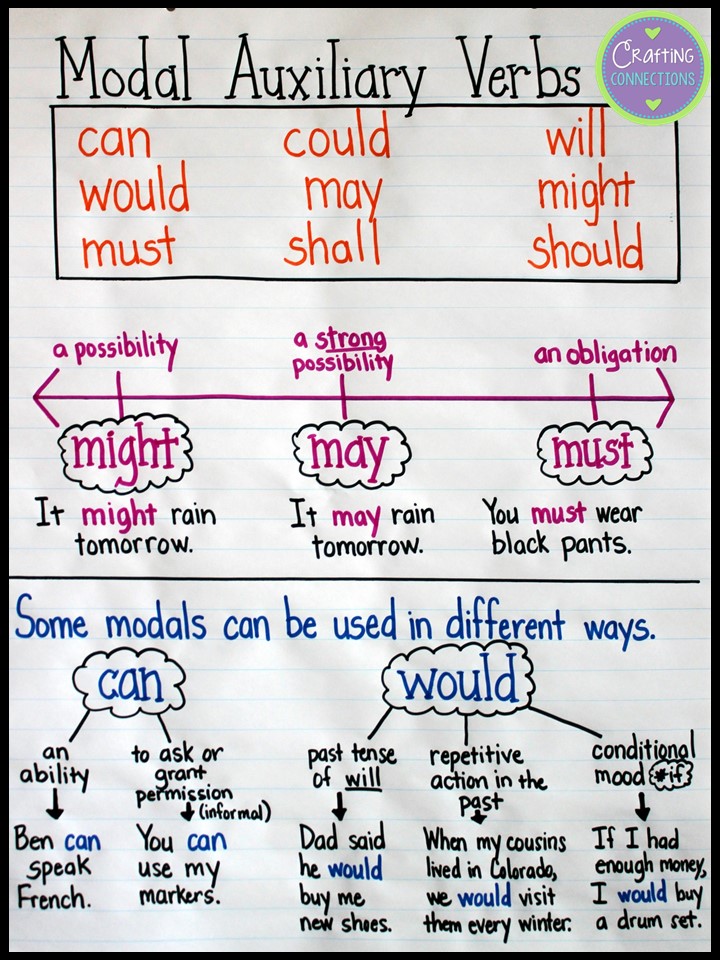 Crafting
CONNECTIONS
Modal Auxiliary Verbs
can could will
would may might
must shall should
a possibility
a strong
possibility
an obligation
might
may
must
It might rain
tomorrow.
It may rain
tomorrow.
You must wear
black pants.
Some modals can be used in different ways.
can
an
ability
Ben can
speak
French.
to ask or
grant
permission
(informal)
You can
use my
markers.
would
past tense
of will
Dad said
he would
buy me
new shoes.
repetitive
action in the
past
When my cousins
lived in Colorado,
we would visit
them every winter.
conditional
mood *if
If I had
enough money,
I would buy
a drum set.